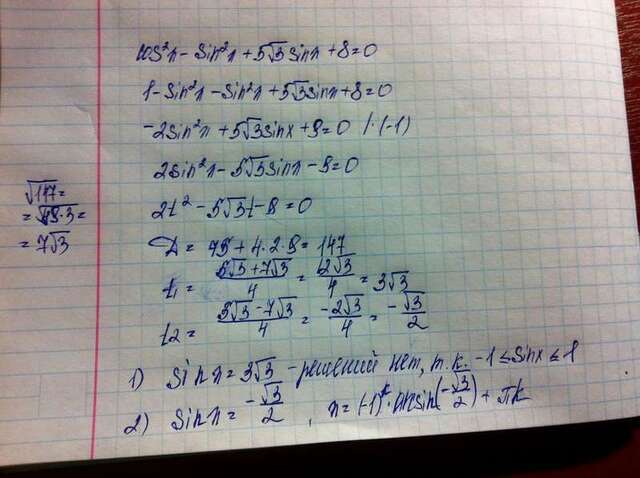 cos²x - sin²x + 5√3 sinx + 8 = 0
1 - sin²x - sin²x + 5√3 sinx + 8 = 0
-2sin²x + 5√3 sinx + 9 = 0 /·(-1)
2sin²x - 5√3 sinx - 9 = 0
2t² - 5√3t - 9 = 0
√147 =
= √49·3 =
= 7√3
D = 75 + 4·2·9 = 147
t₁ = (5√3 + 7√3)/4 = 12√3/4 = 3√3
t2 = (5√3 - 7√3)/4 = -2√3/4 = -√3/2
1) sinx = 3√3 - решений нет, т.к. -1 ≤ sinx ≤ 1
2) sinx = -√3/2, x = (-1)^k · arcsin(-√3/2) + πk